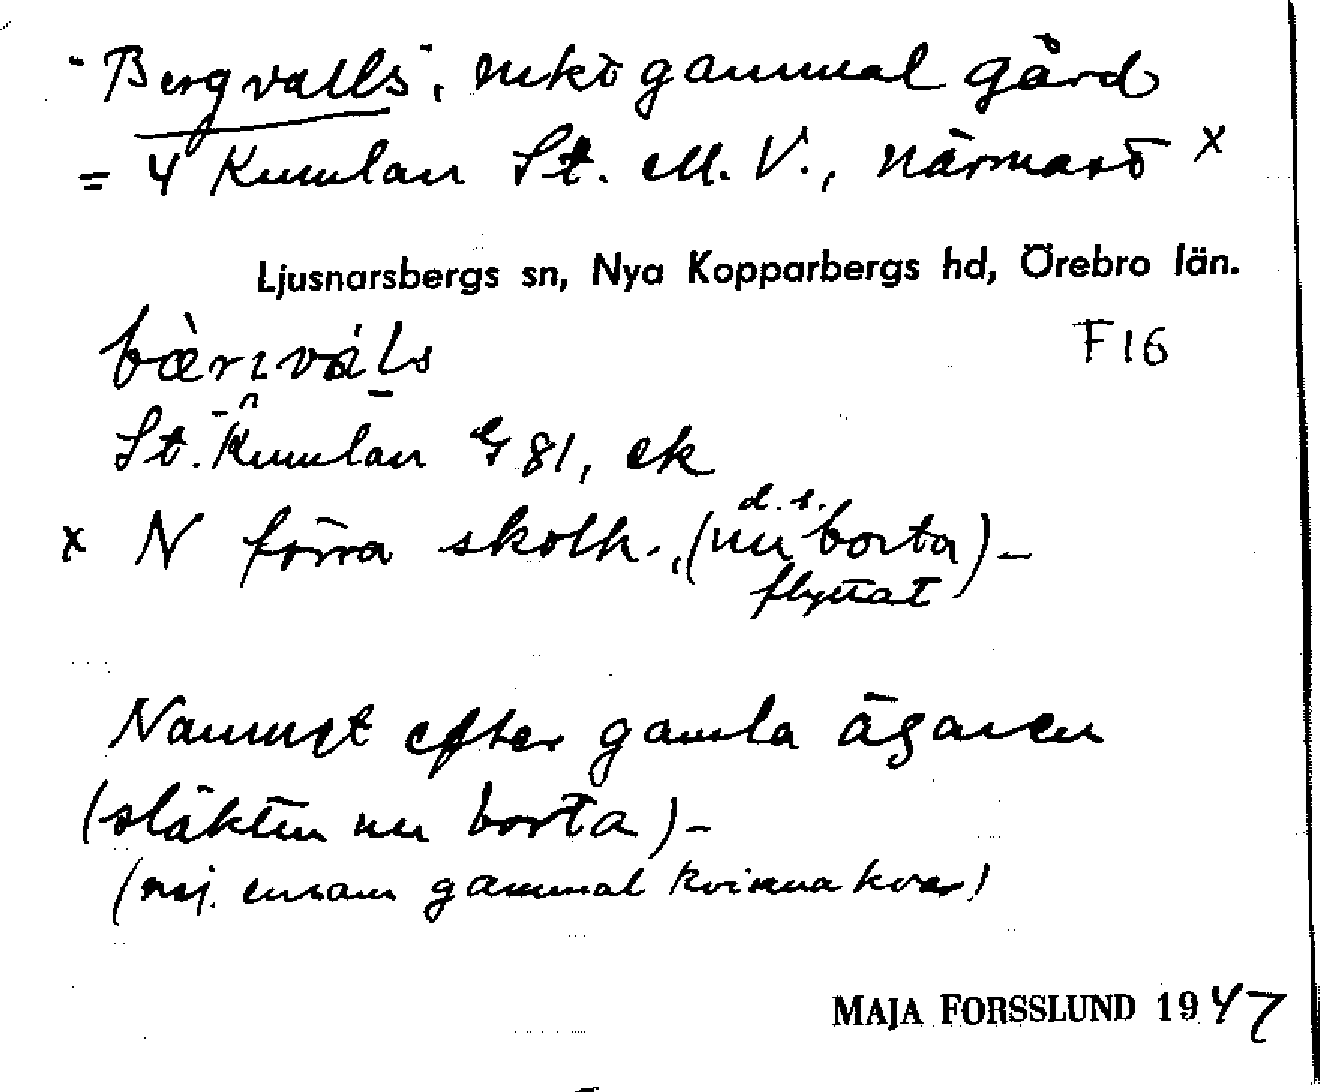 "Bergvalls", mkt gammal gård
= 4 Kumlan St. M. V., närmast x
Ljusnarsbergs sn, Nya Kopparbergs hd, Örebro län.
F16
St. Kumlan G 81, ek
x N förra skolh., (nu borta) –
d. s.
flyttat
Namnet efter gamla ägaren
(släkten nu borta) –
(nej. ensam gammal kvinna kvar)
MAJA FORSSLUND 1947